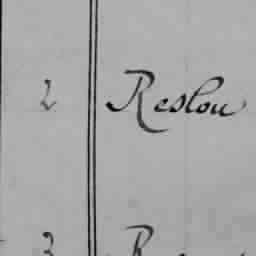 2 Reslou
3